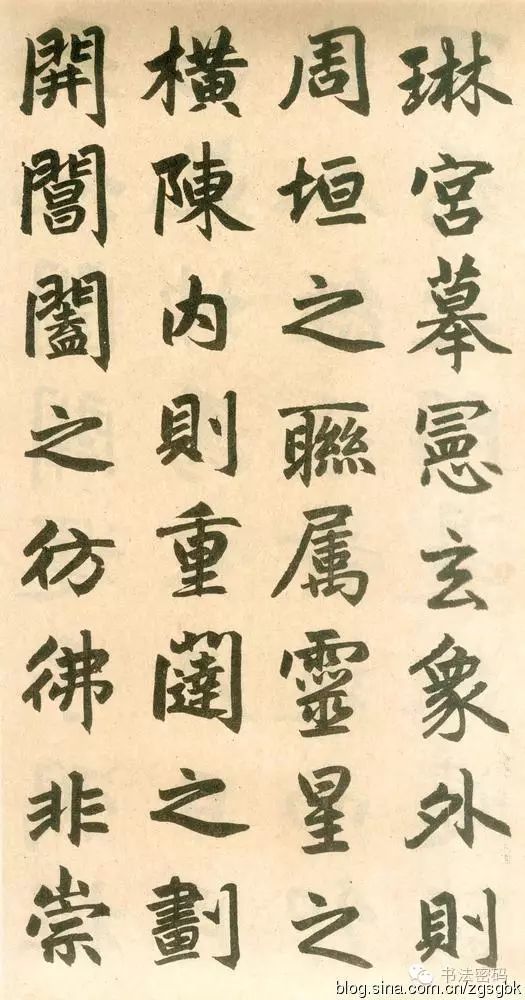 琳宮摹憲玄象外則
周垣之聯属靈星之
橫陳内則重闥之劃
開閶闔之彷彿非崇
书法密码
blog.sina.com.cn/zgsgbk